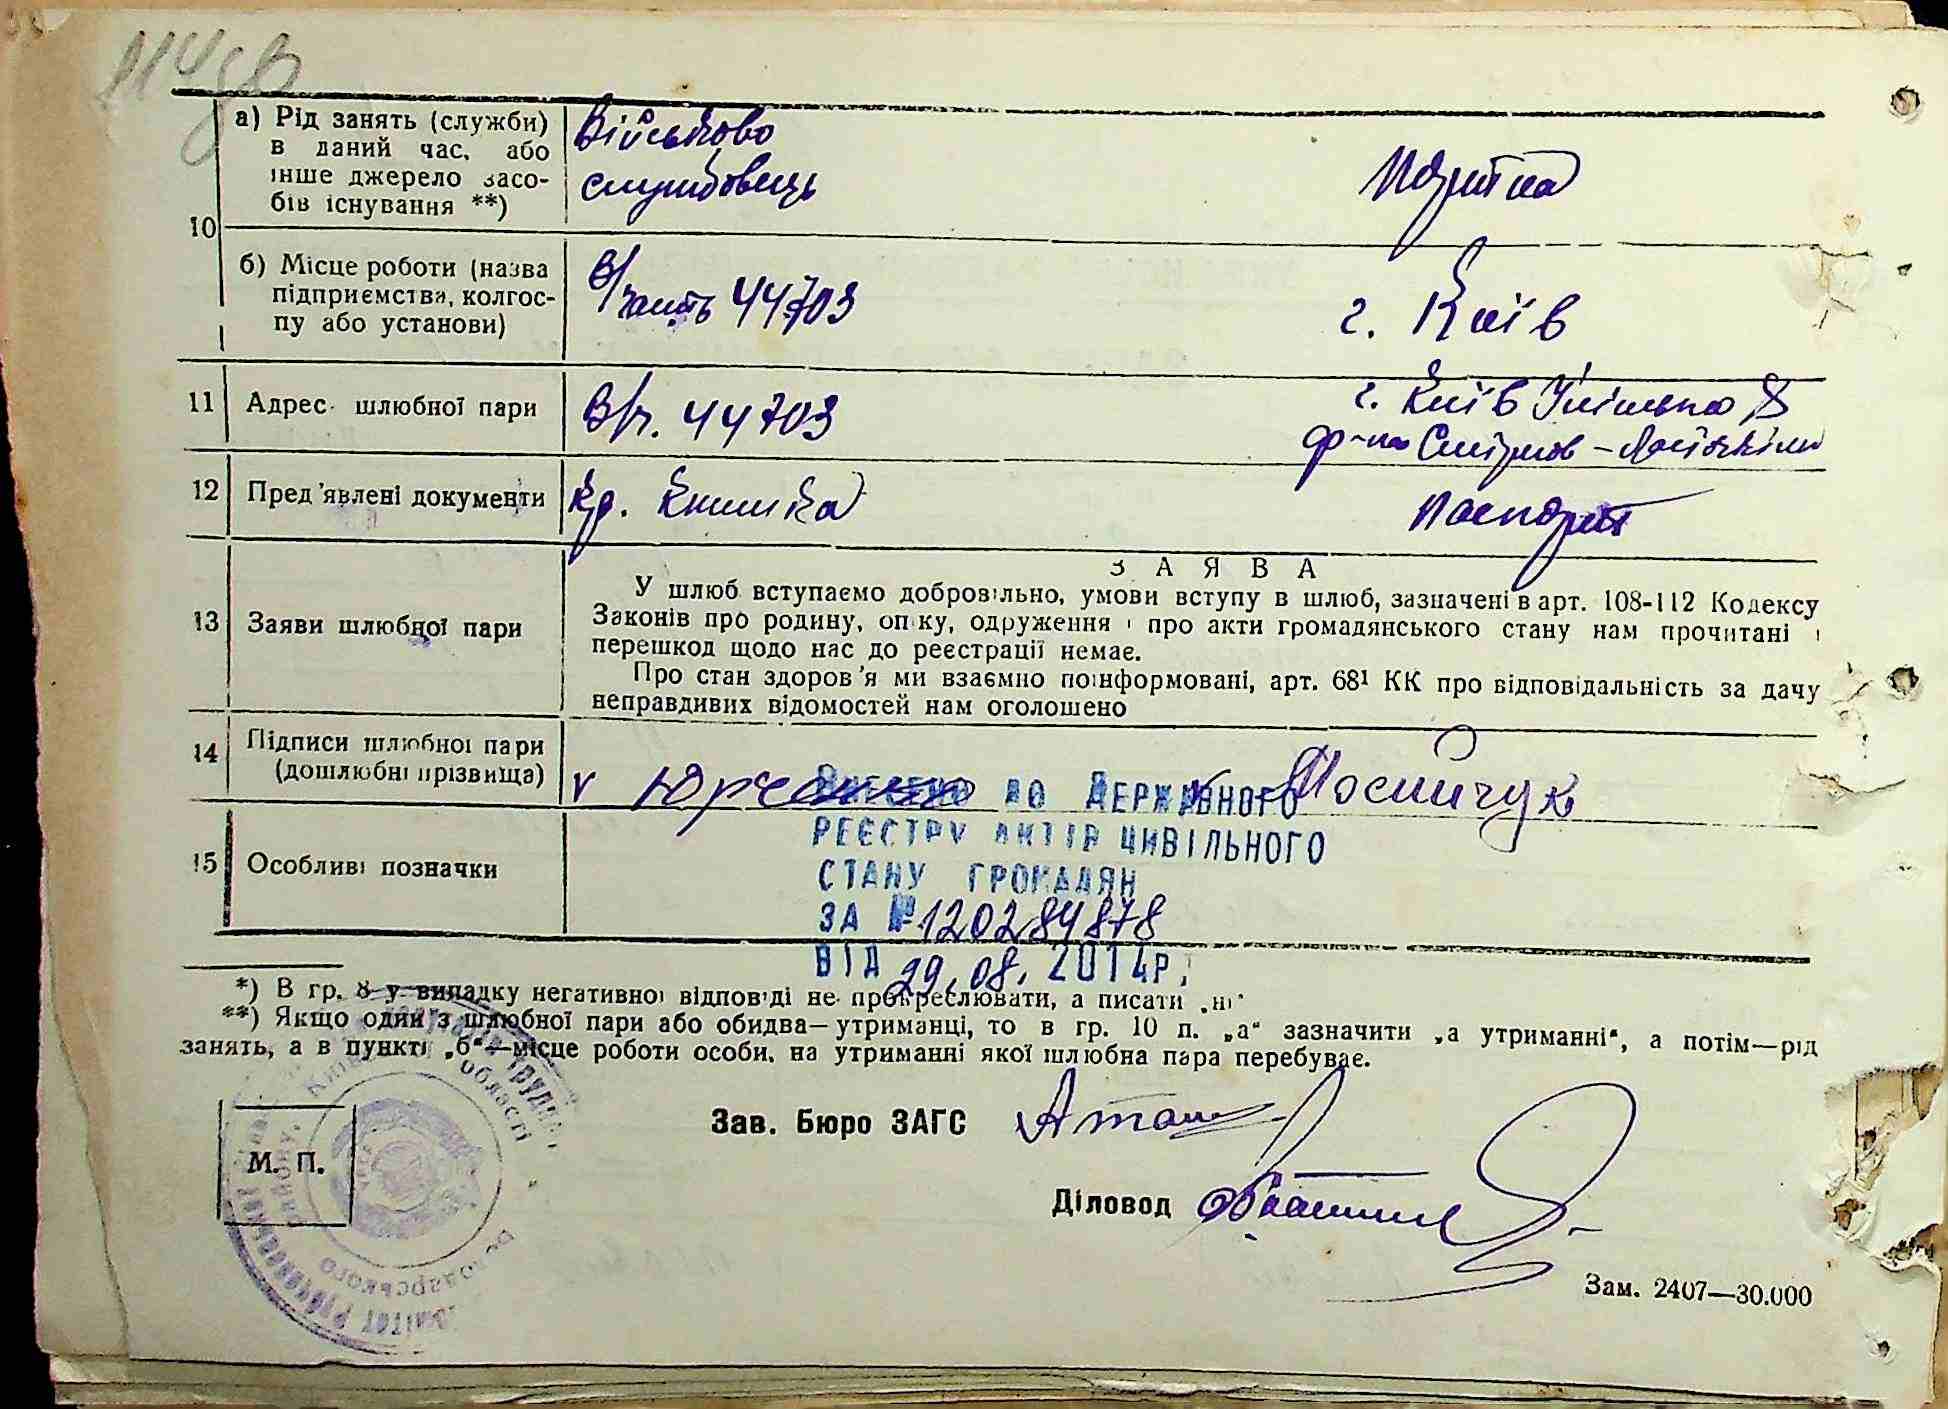 а) Рід занять (служби)
в даний час, або
інше джерело засо-
бів існування **)
Військово
службовець
10
б) Місце роботи (назва
підприємства, колгос-
пу або установи)
В/часть 44703
г. Київ
11 Адрес шлюбної пари
В/ч. 44703
г. Київ
12 Пред'явлені документи
Кр. Книжка
Паспорт
13 Заяви шлюбної пари
ЗАЯВА
У шлюб вступаємо добровільно, умови вступу в шлюб, зазначені в арт. 108-112 Кодексу
Законів про родину, опіку, одруження і про акти громадянського стану нам прочитані і
перешкод щодо нас до реєстрації немає.
Про стан здоров'я ми взаємно поінформовані, арт. 68¹ КК про відповідальність за дачу
неправдивих відомостей нам оголошено
14 Підписи шлюбної пари
(дошлюбні прізвища)
v
15 Особливі позначки
Внесено до Державного
реєстру актів цивільного
стану громадян
за № 120284878
від 29.08.2014р.
*) В гр. 8 у випадку негативної відповіді не прокреслювати, а писати „ні"
**) Якщо один з шлюбної пари або обидва—утриманці, то в гр. 10 п. „а" зазначити „а утриманні", а потім—рід
занять, а в пункті „б"—місце роботи особи, на утриманні якої шлюбна пара перебуває.
Зав. Бюро ЗАГС
М. П.
Діловод
Зам. 2407—30.000